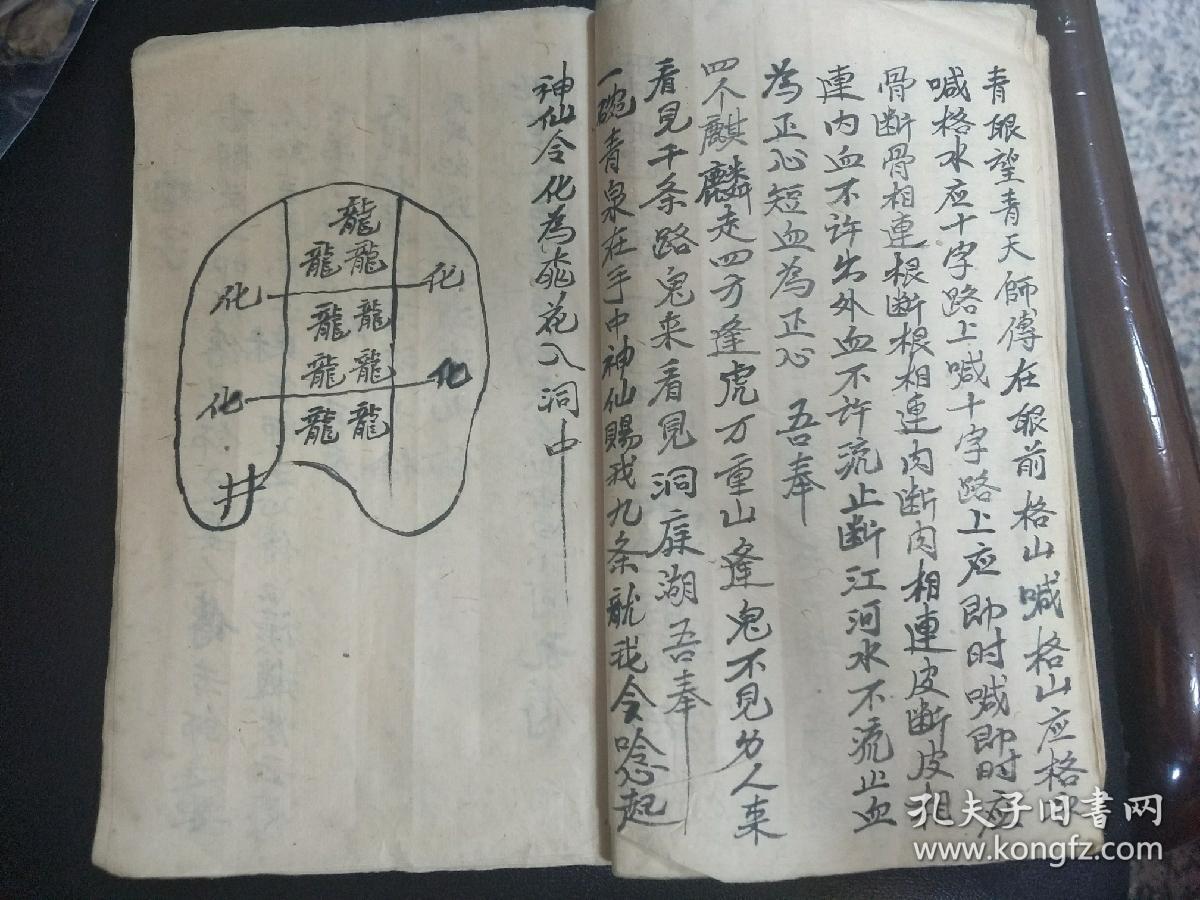 青眼望青天師傅在眼前格山喊格山应格
喊格水应十字路上喊十字路上应即时喊即时应
骨断骨相連根断根相連肉断肉相連皮断皮相
連内血不许出外血不许流止断江河水不流止血
為正心短血為正心 吾奉
四个麒麟走四方逢虎万重山逢鬼不見力人来
看見千条路鬼来看見洞庭湖吾奉
一碗青泉在手中神仙賜我九条龍我今唸起
神仙令化為花入洞中
龍
龍龍
化 化
龍龍
龍龍
化 化
龍龍
井
孔夫子旧书网
www.kongfz.com